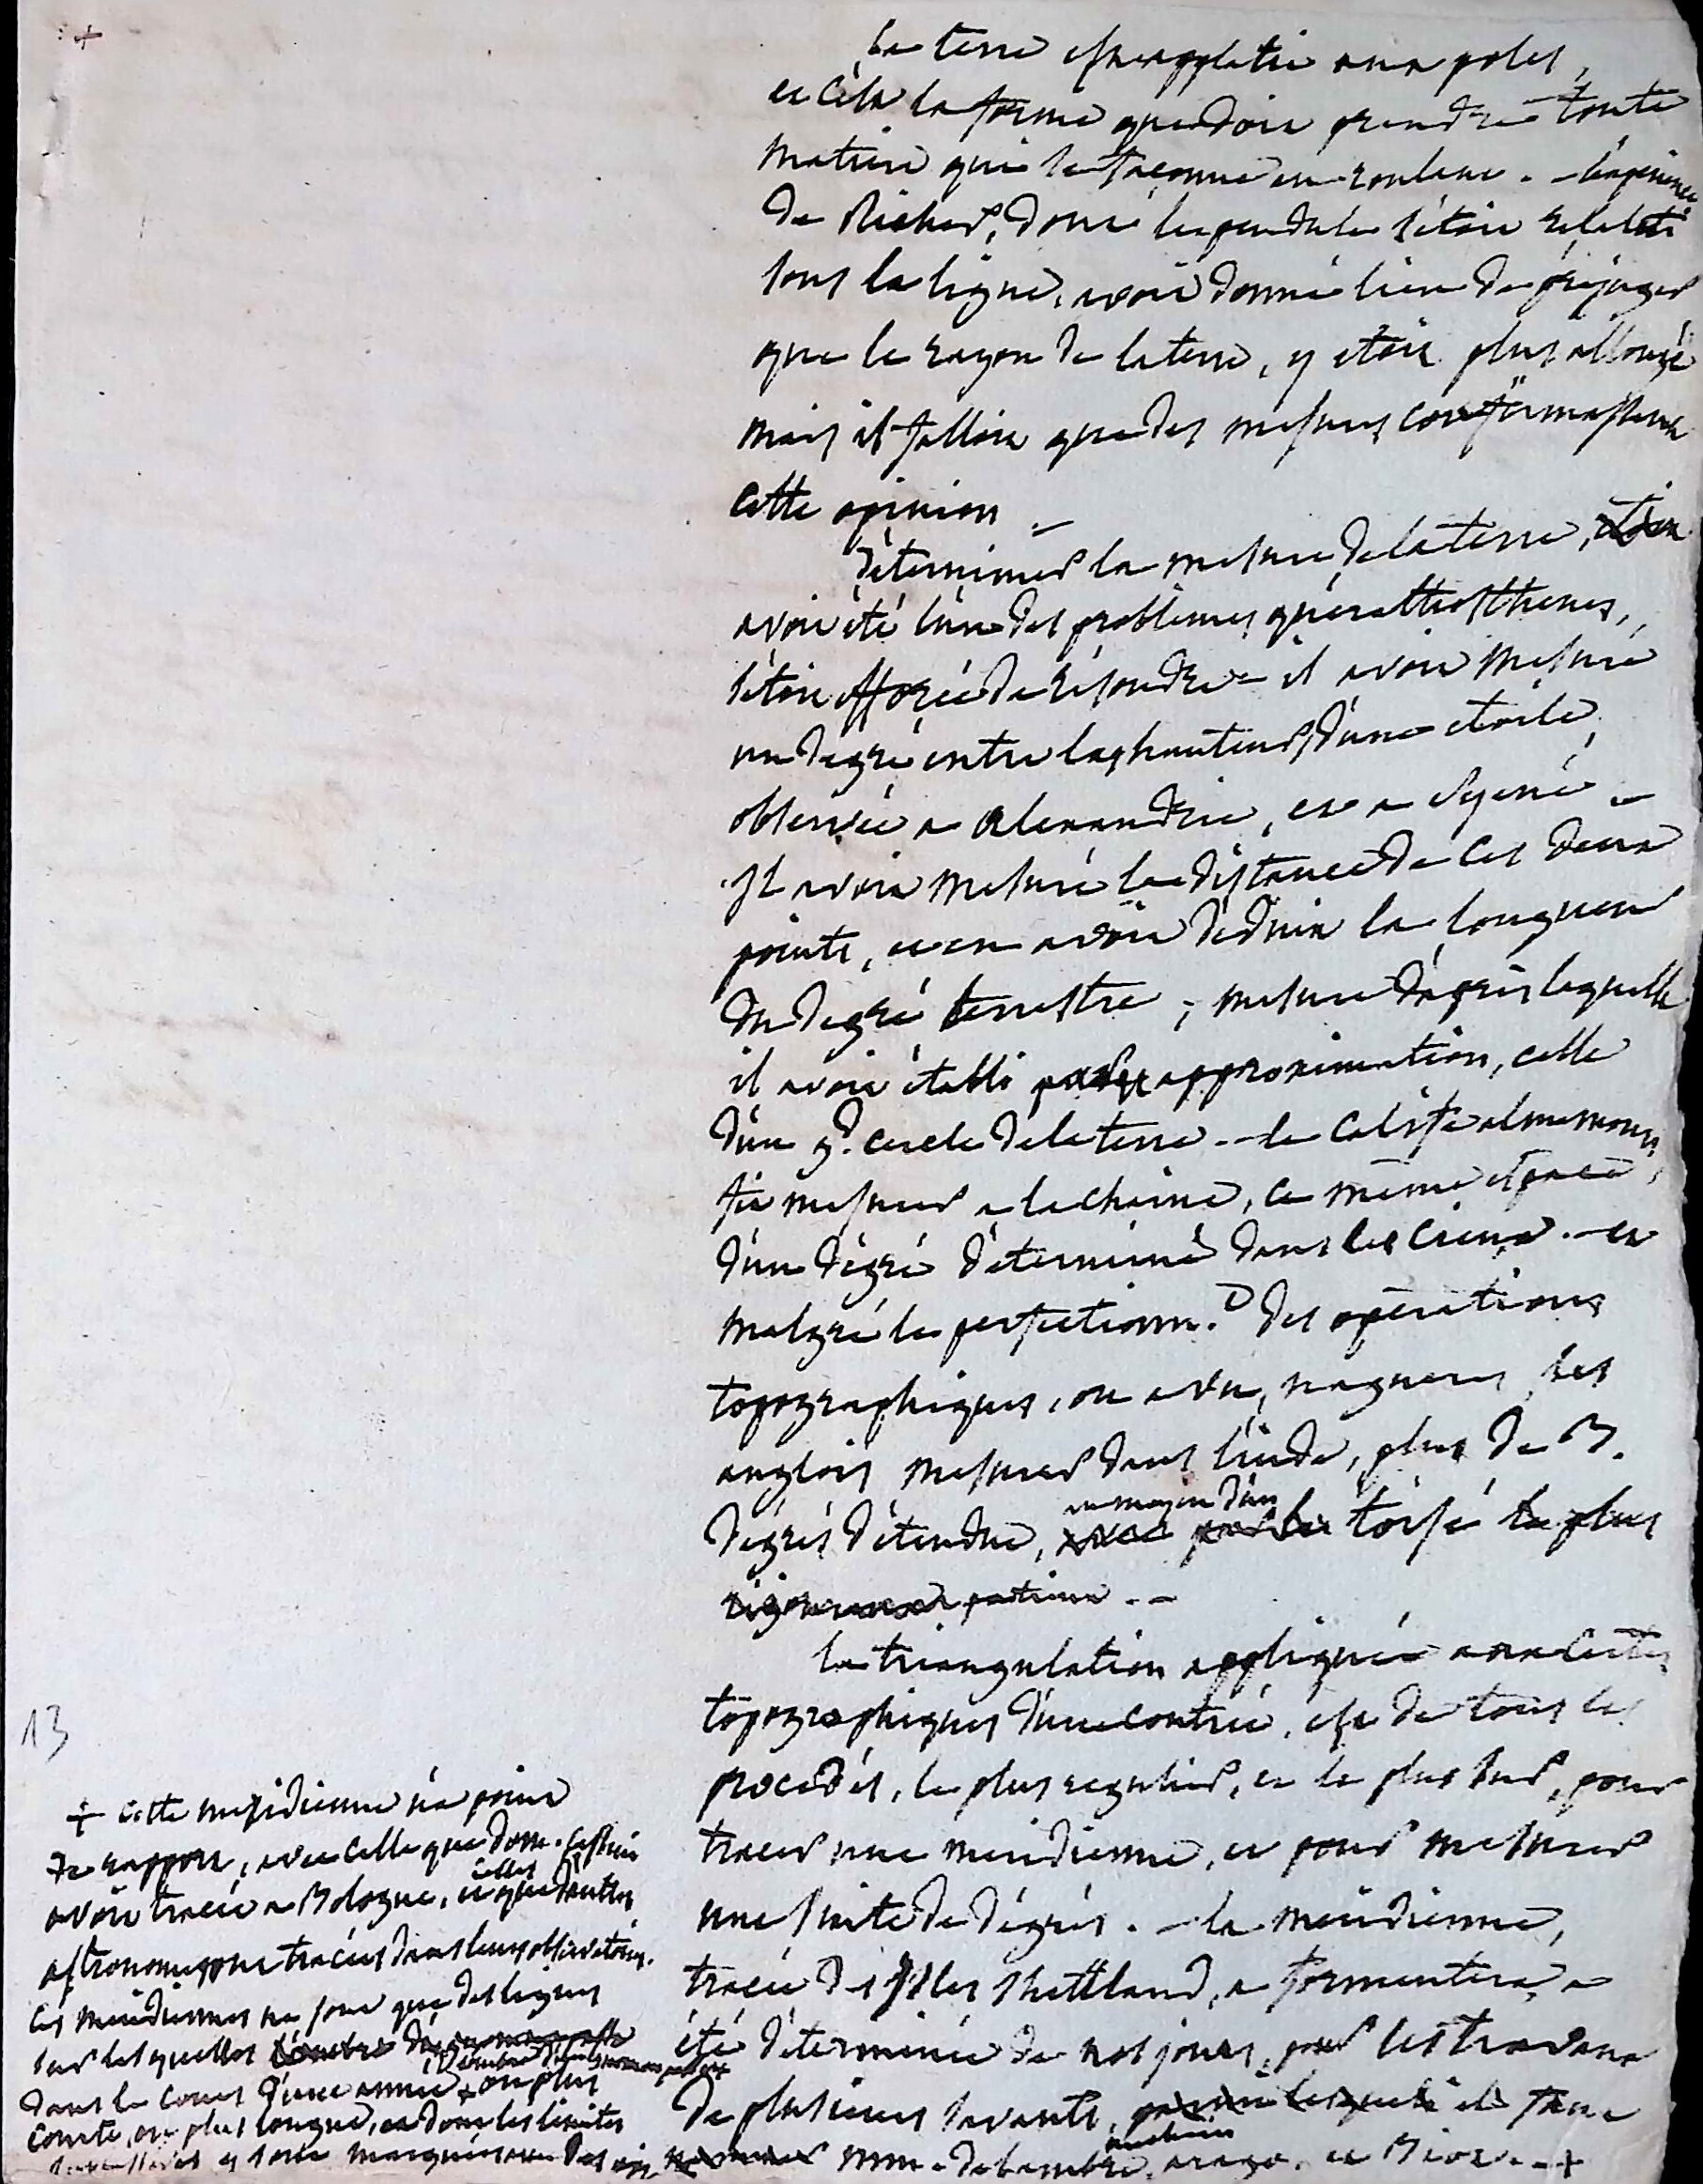 +
La terre est applatie aux poles,
et c'est la forme que doit prendre toute
matiere qui se façonne en roulant. - l'experience
de Richer, dont le pendule s'étoit rallenti
sous la ligne, avoit donné lieu de préjuger
que le rayon de la terre, y etoit plus allongé
mais il falloit que des mesures confirmassent
cette opinion -
déterminer la mesure de la terre,
avoit été l'un des problemes qu'eratthosthenes,
s'étoit efforcé de résoudre - il avoit mesuré
un dégré entre les hauteurs d'une etoile,
observée a Alexandrie, et a Syené -
Il avoit mesuré la distance de ces deux
points, et en avoit déduit la longueur
du degré terrestre ; mesure d'après laquelle
il avoit établi par approximation, celle
d'un gd. cercle de la terre. - le calife almamoun,
fit mesurer a la chaine, ce même espace,
d'un dégré déterminé dans les cieux. - et
malgré le perfectionnt. des opérations
topographiques, on a vu, nagueres les
anglois mesurer dans l'inde, plus de 3.
dégrés d'étendue,
au moyen d'un
toisé le plus
rigoureux
la triangulation appliquée aux cartes
topographiques d'une contrée, est de tous les
procédés, le plus regulier, et le plus sur, pour
tracer une meridienne, et pour mesurer
une suite de dégrés. - la meridienne,
tracée des Isles Shettland, a formentera, a
été déterminée de nos jours, par les travaux
de plusieurs savants, parmi lesquels il faut
nommer mm. delambre,
mechain
arago, et Biot. - +
13
+ cette meridienne n'a point
de rapport, avec celle que dom. Cassini
avoit tracée a Bologne, et
celles
que d'autres
astronomes ont tracées dans leurs observatoires.
ces meridiennes ne sont que des lignes
sur lesquelles
l'ombre d'un gnomon
dans le cours d'une année, ou plus
courte, ou plus longue, et dont les limites
y sont marquées